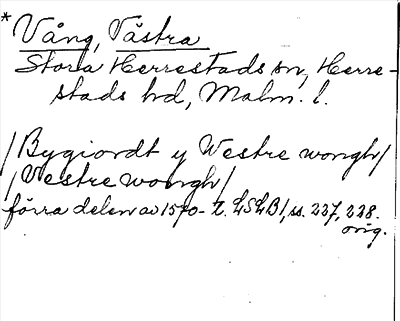 * Vång, Västra
Stora Herrestads sn, Herre-
stads hd, Malm. l.
/Bygiordt y Westre wongh/
/Vestre wongh/
förra delen av 1570-t. LSLB1, ss. 227, 228.
orig.